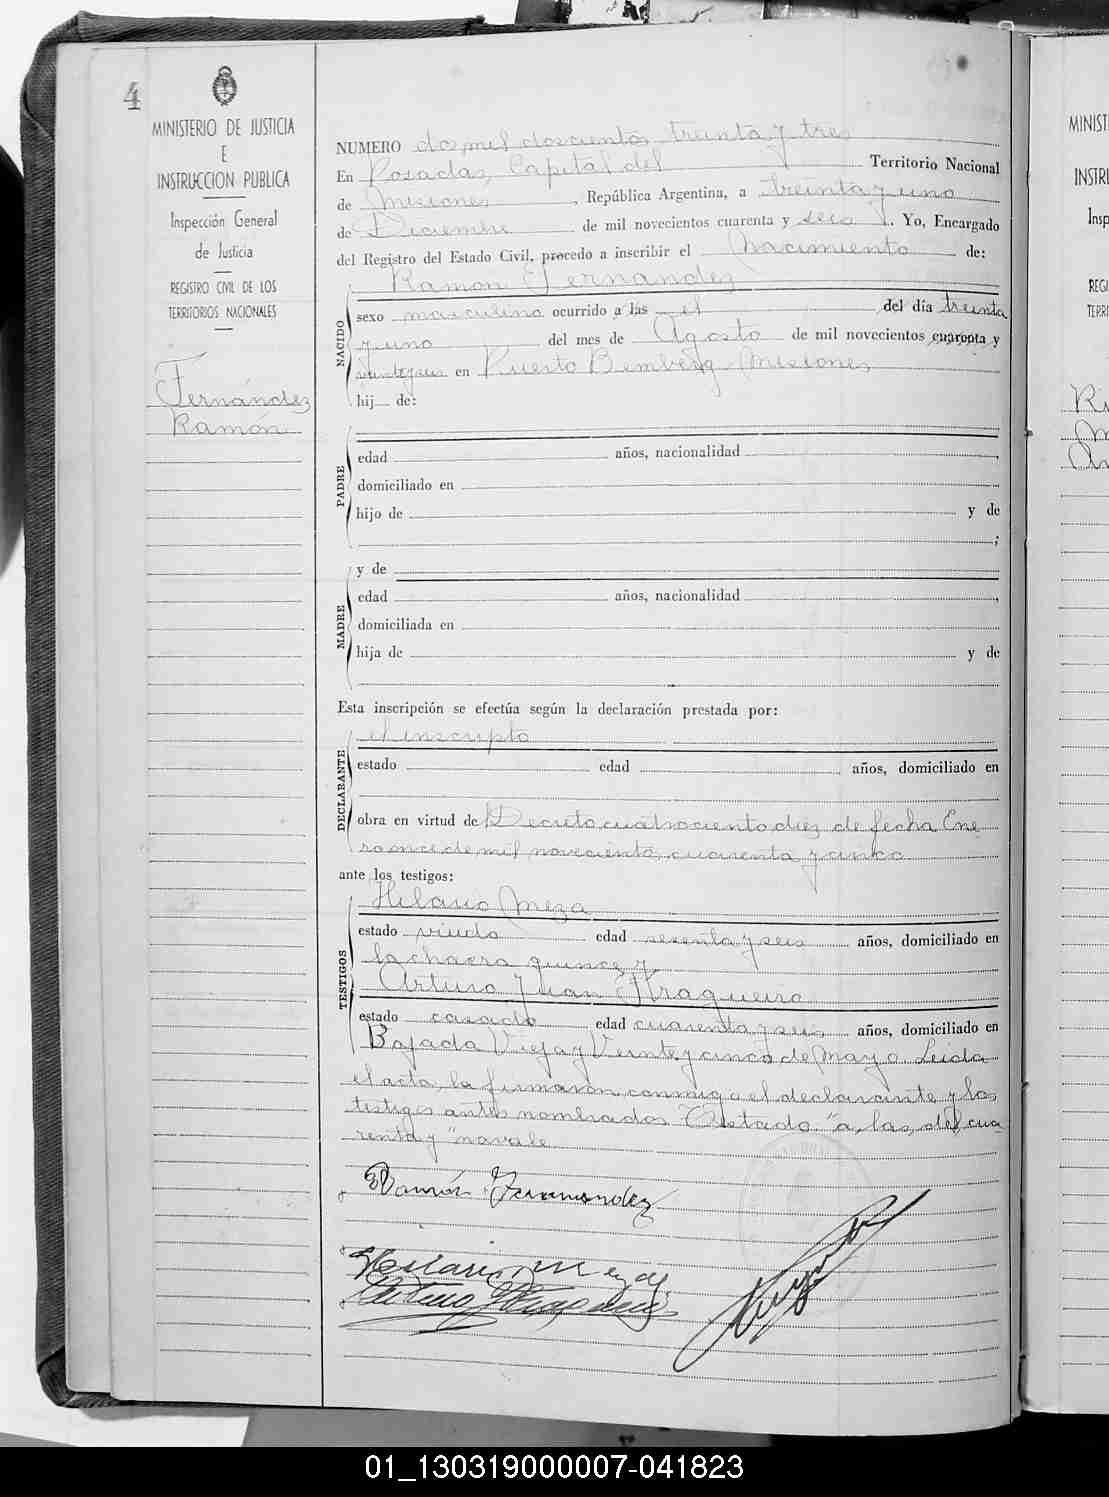 4
MINISTERIO DE JUSTICIA
E
INSTRUCCION PUBLICA
Inspección General
de Justicia
REGISTRO CIVIL DE LOS
TERRITORIOS NACIONALES
Fernández
Ramón
NUMERO dos mil doscientos treinta y tres
En Posadas, Capital del Territorio Nacional
de Misiones, República Argentina, a treinta y uno
de Diciembre de mil novecientos cuarenta y seis. Yo, Encargado
del Registro del Estado Civil, procedo a inscribir el Nacimiento de:
NACIDO
Ramón Fernández
sexo masculino ocurrido a las el del día treinta
y uno del mes de Agosto de mil novecientos cuarenta y
veintiseis en Puerto Bemberg Misiones
hij de:
PADRE
edad años, nacionalidad ,
domiciliado en
hijo de y de
;
MADRE
y de
edad años, nacionalidad ,
domiciliada en
hija de y de
Esta inscripción se efectúa según la declaración prestada por:
DECLARANTE
el inscripto
estado edad años, domiciliado en
obra en virtud de Decreto cuatrociento diez de fecha Ene
ro once de mil novecientos cuarenta y cinco
ante los testigos:
TESTIGOS
Hilario Meza
estado viudo edad sesenta y seis años, domiciliado en
la chacra quince y
Arturo Juan Fragueiro
estado casado edad cuarenta y seis años, domiciliado en
Bajada Vieja y Veinte y cinco de Mayo. Leida
el acta, la firmaron conmigo el declarante y los
testigos antes nombrados Testado: "a, las, del, cua
renta y" no vale
Ramón Fernandez
Hilario Meza
MINIST
INSTRU
Insp
REGI
TERRI
01_130319000007-041823